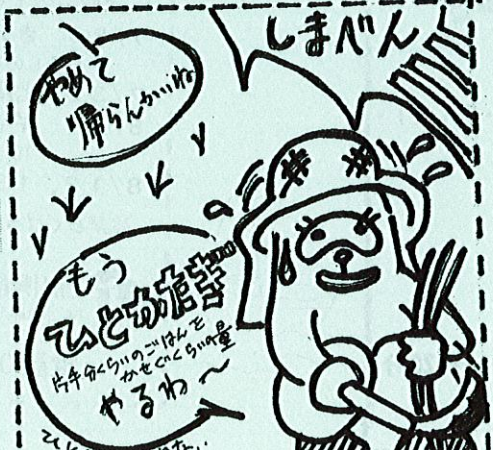 しまべん
やめて
帰らんかいね
もう
ひとかせぎ
片手分くらいのごはんを
かせぐくらいの量
やるわ〜